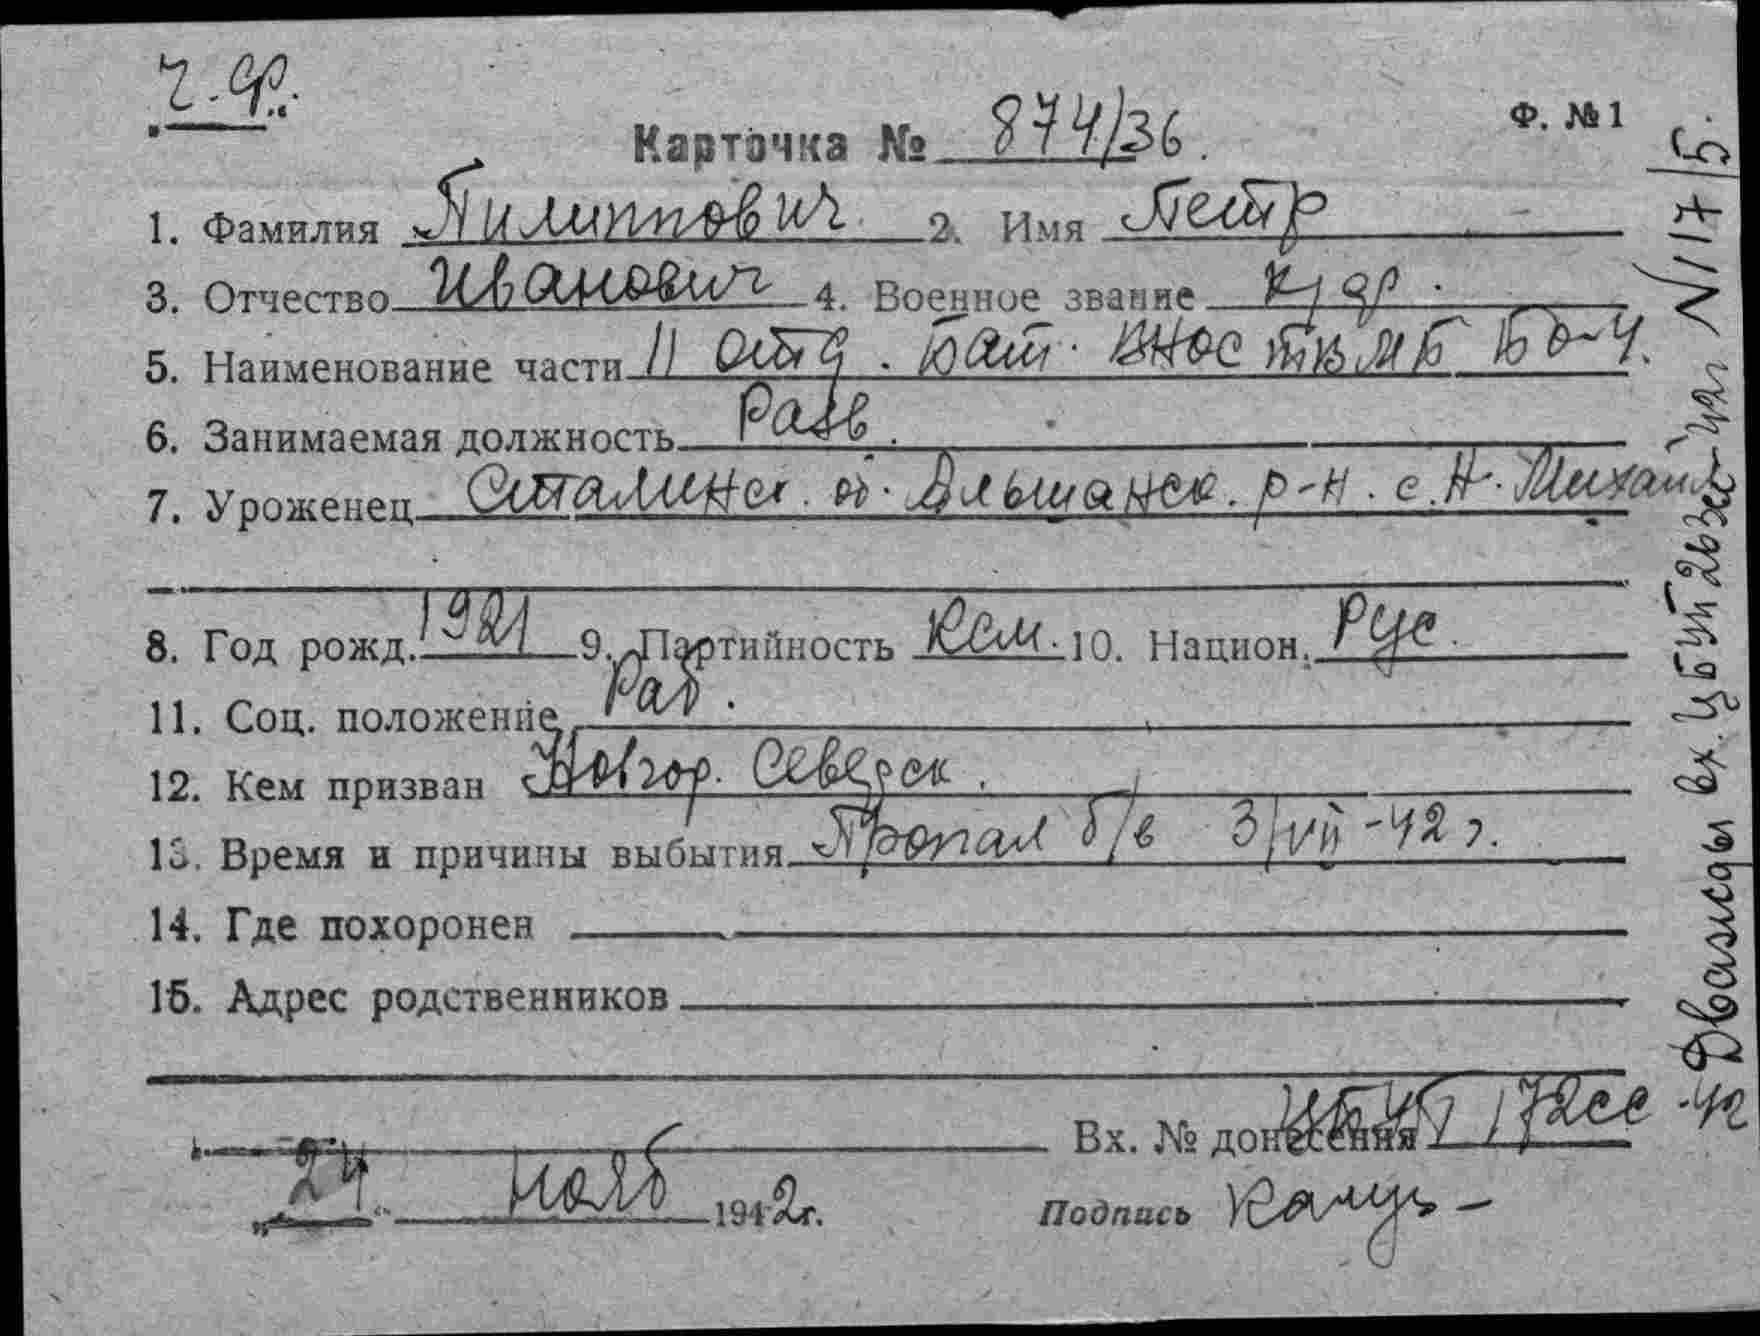 Ч.Ф.
Карточка № 874/36.
Ф. № 1
1. Фамилия Пилиппович 2. Имя Петр
3. Отчество Иванович 4. Военное звание к/ф.
5. Наименование части 11 отд. бат. ВНОС ТВМБ БО-Ч.
6. Занимаемая должность Разв.
7. Уроженец Сталинск. об. Альшанск. р-н. с. Н. Михайл
8. Год рожд. 1921 9. Партийность Ксм. 10. Национ. Рус.
11. Соц. положение Раб.
12. Кем призван Новгор. Северск.
13. Время и причины выбытия Пропал б/в 3/VII-42 г.
14. Где похоронен
15. Адрес родственников
Вх. № донесения 172сс -42
24 нояб 1942 г. Подпись
Дважды вх. №117/5.